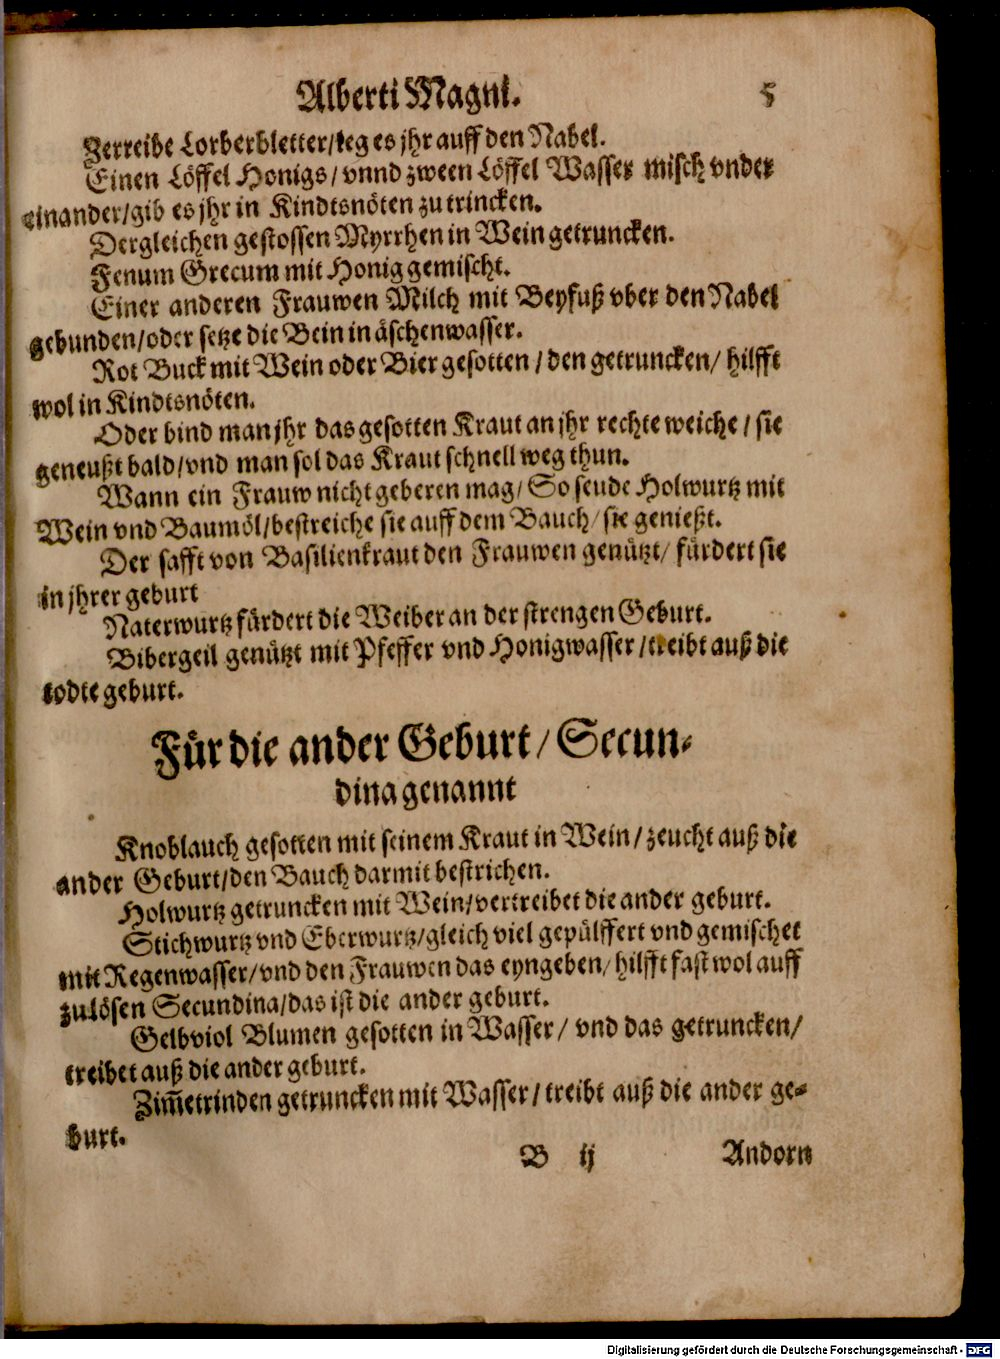 Alberti Magni. 5
Zerreibe Lorberbletter/leg es jhr auff den Nabel.
Einen Löffel Honigs/ vnnd zween Löffel Wasser misch vnder
einander/gib es jhr in Kindtsnöten zu trincken.
Dergleichen gestossen Myrrhen in Wein getruncken.
Fenum Grecum mit Honig gemischt.
Einer anderen Frauwen Milch mit Beyfuß vber den Nabel
gebunden/oder setze die Bein in äschenwasser.
Rot Buck mit Wein oder Bier gesotten / den getruncken/ hilfft
wol in Kindtsnöten.
Oder bind man jhr das gesotten Kraut an jhr rechte weiche / sie
geneußt bald/vnd man sol das Kraut schnell weg thun.
Wann ein Frauw nicht geberen mag/ So seude Holwurtz mit
Wein vnd Baumöl/bestreiche sie auff dem Bauch/ sie genießt.
Der safft von Basilienkraut den Frauwen genützt/ fürdert sie
in jhrer geburt
Naterwurtz fürdert die Weiber an der strengen Geburt.
Bibergeil genützt mit Pfeffer vnd Honigwasser /treibt auß die
todte geburt.
Für die ander Geburt/ Secun-
dina genannt
Knoblauch gesotten mit seinem Kraut in Wein/ zeucht auß die
ander Geburt/den Bauch darmit bestrichen.
Holwurtz getruncken mit Wein/vertreibet die ander geburt.
Stichwurtz vnd Eberwurtz/gleich viel gepülffert vnd gemischet
mit Regenwasser/vnd den Frauwen das eyngeben/ hilfft fast wol auff
zulösen Secundina/das ist die ander geburt.
Gelbviol Blumen gesotten in Wasser/ vnd das getruncken/
treibet auß die ander geburt.
Zim̃etrinden getruncken mit Wasser/ treibt auß die ander ge-
burt.
B ij Andorn
Digitalisierung gefördert durch die Deutsche Forschungsgemeinschaft - DFG